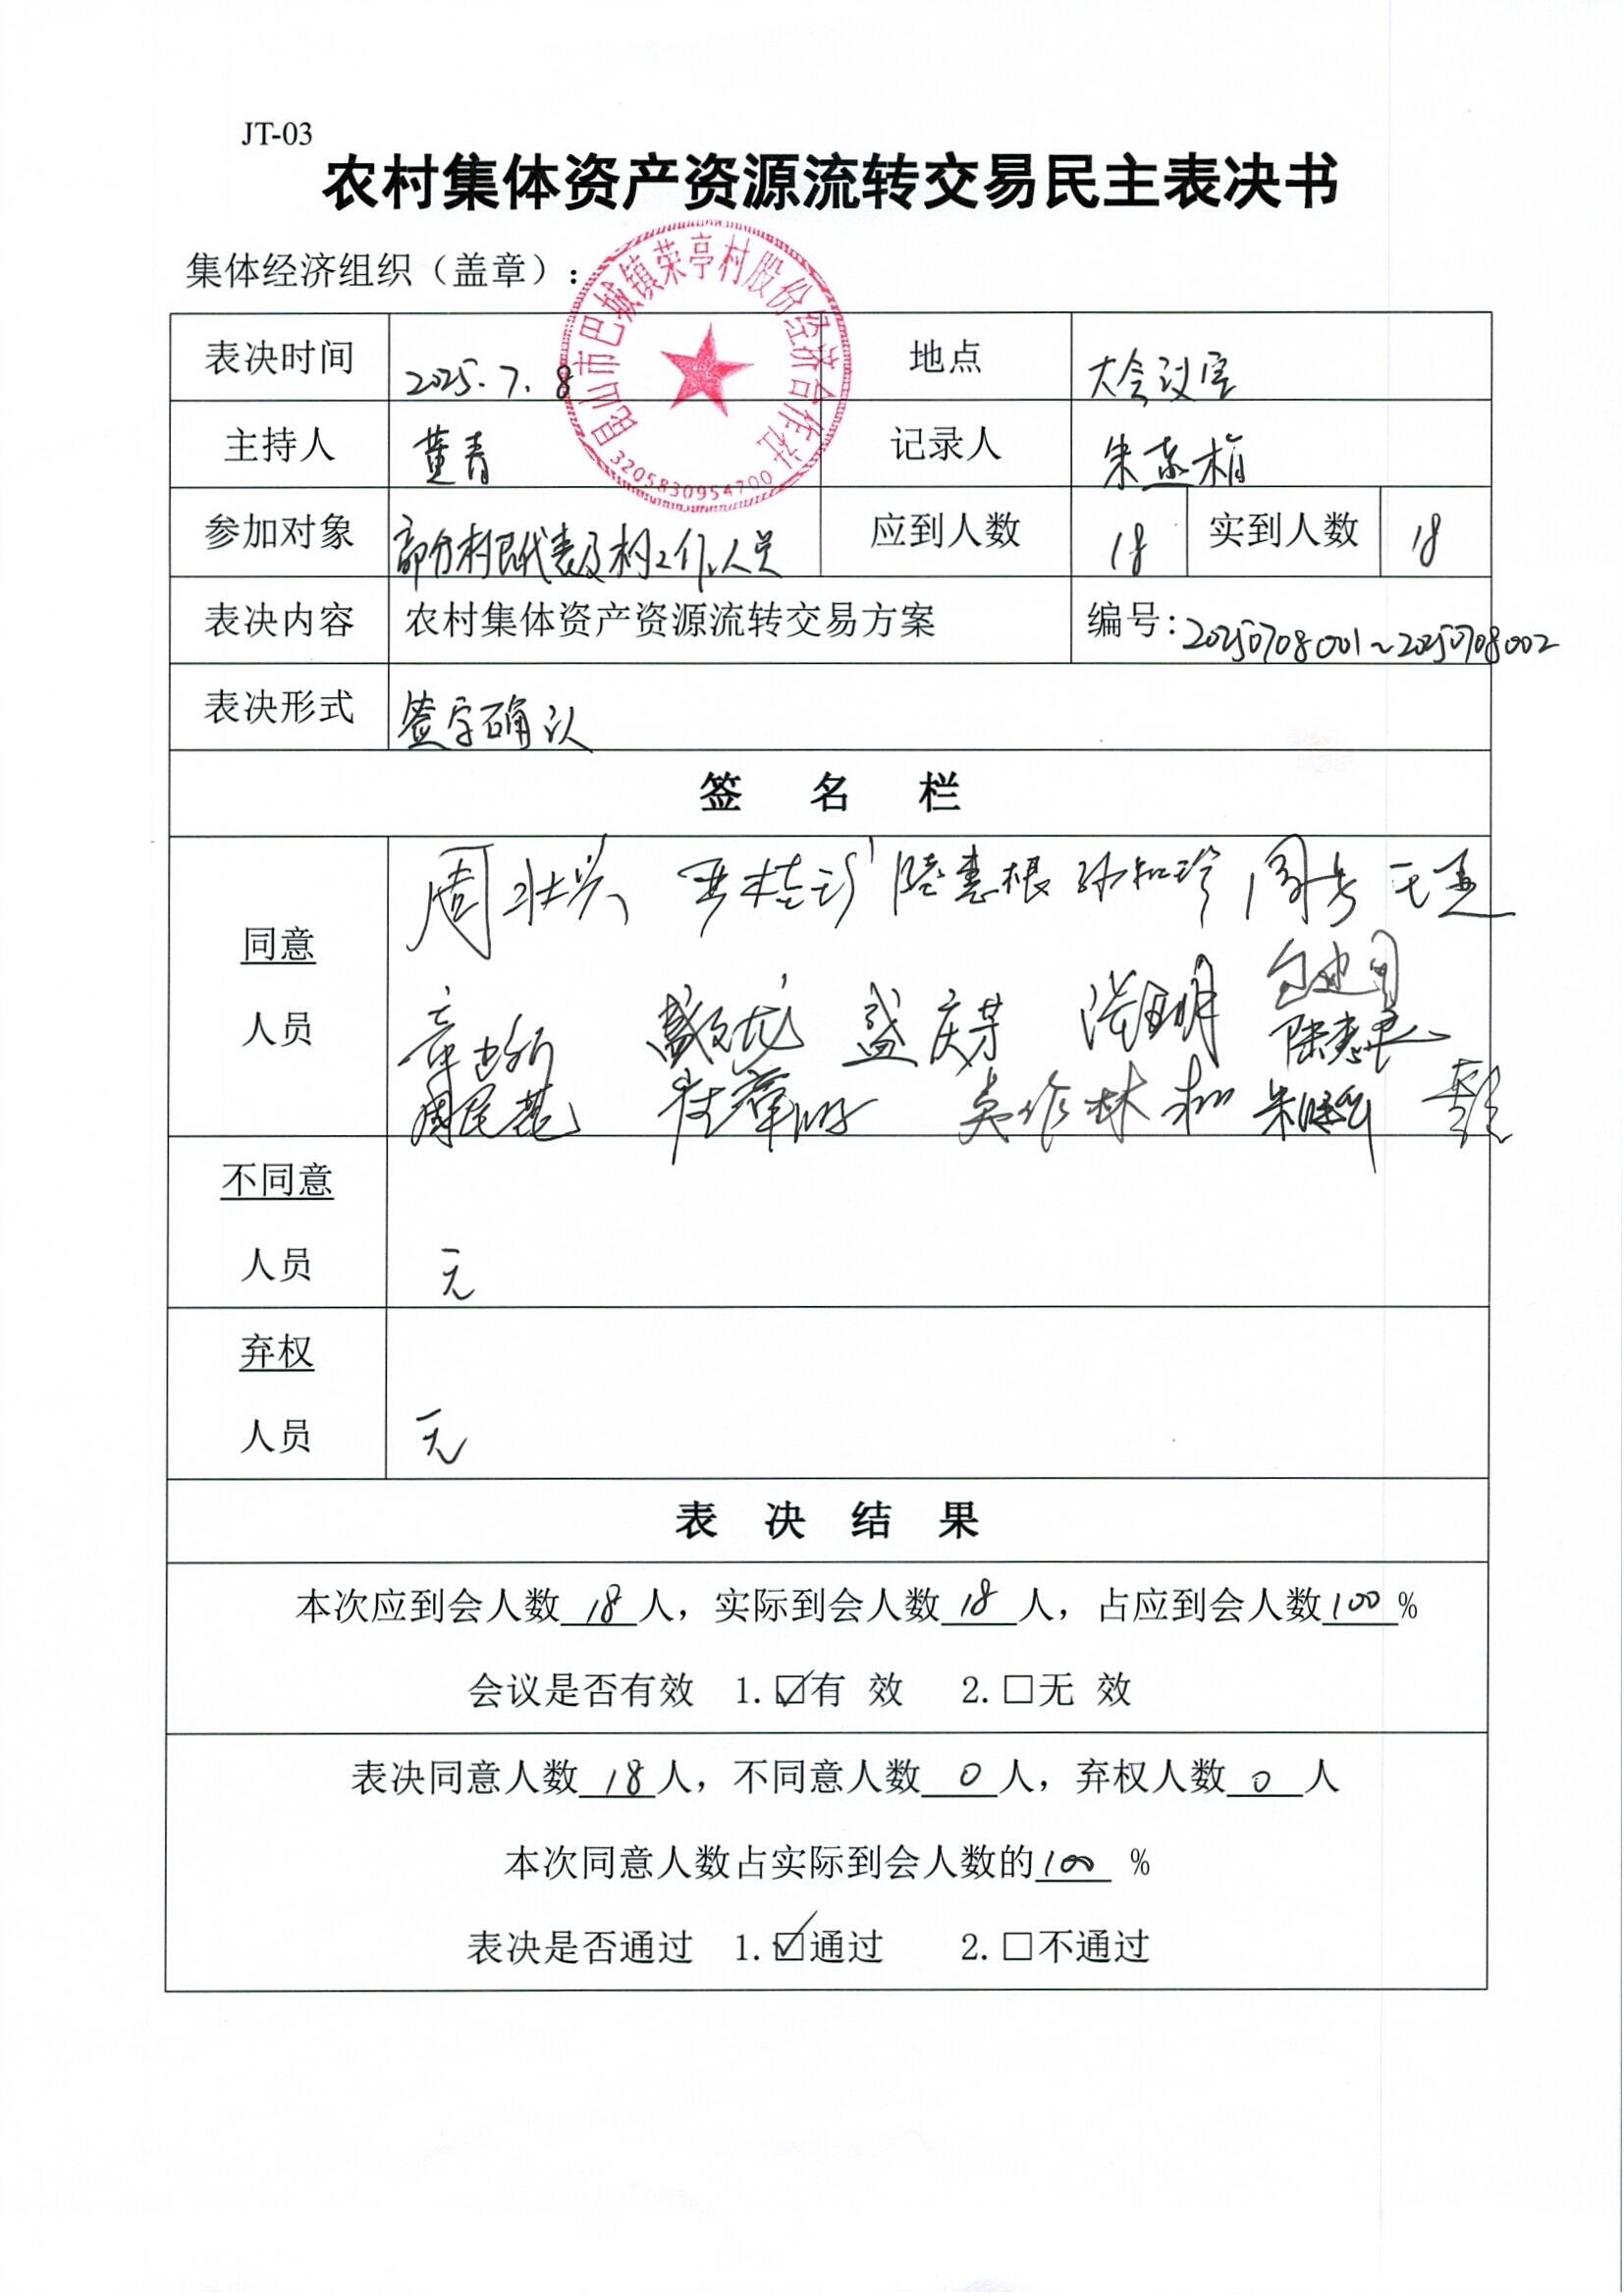 JT-03
农村集体资产资源流转交易民主表决书
集体经济组织（盖章）：
昆山市巴城镇荣亭村股份经济合作社
3205830954700
表决时间 2025.7.8 地点 大会议室
主持人 黄青 记录人 朱燕楠
参加对象 部分村民代表及村工作人员 应到人数 18 实到人数 18
表决内容 农村集体资产资源流转交易方案 编号：20250708001~20250708002
表决形式 签字确认
签 名 栏
同意
人员
周壮兴 陆惠根
盛庆芳
吴作林
不同意
人员 无
弃权
人员 无
表 决 结 果
本次应到会人数 18 人，实际到会人数 18 人，占应到会人数 100 %
会议是否有效 1.☑有 效 2.□无 效
表决同意人数 18 人，不同意人数 0 人，弃权人数 0 人
本次同意人数占实际到会人数的 100 %
表决是否通过 1.☑通过 2.□不通过